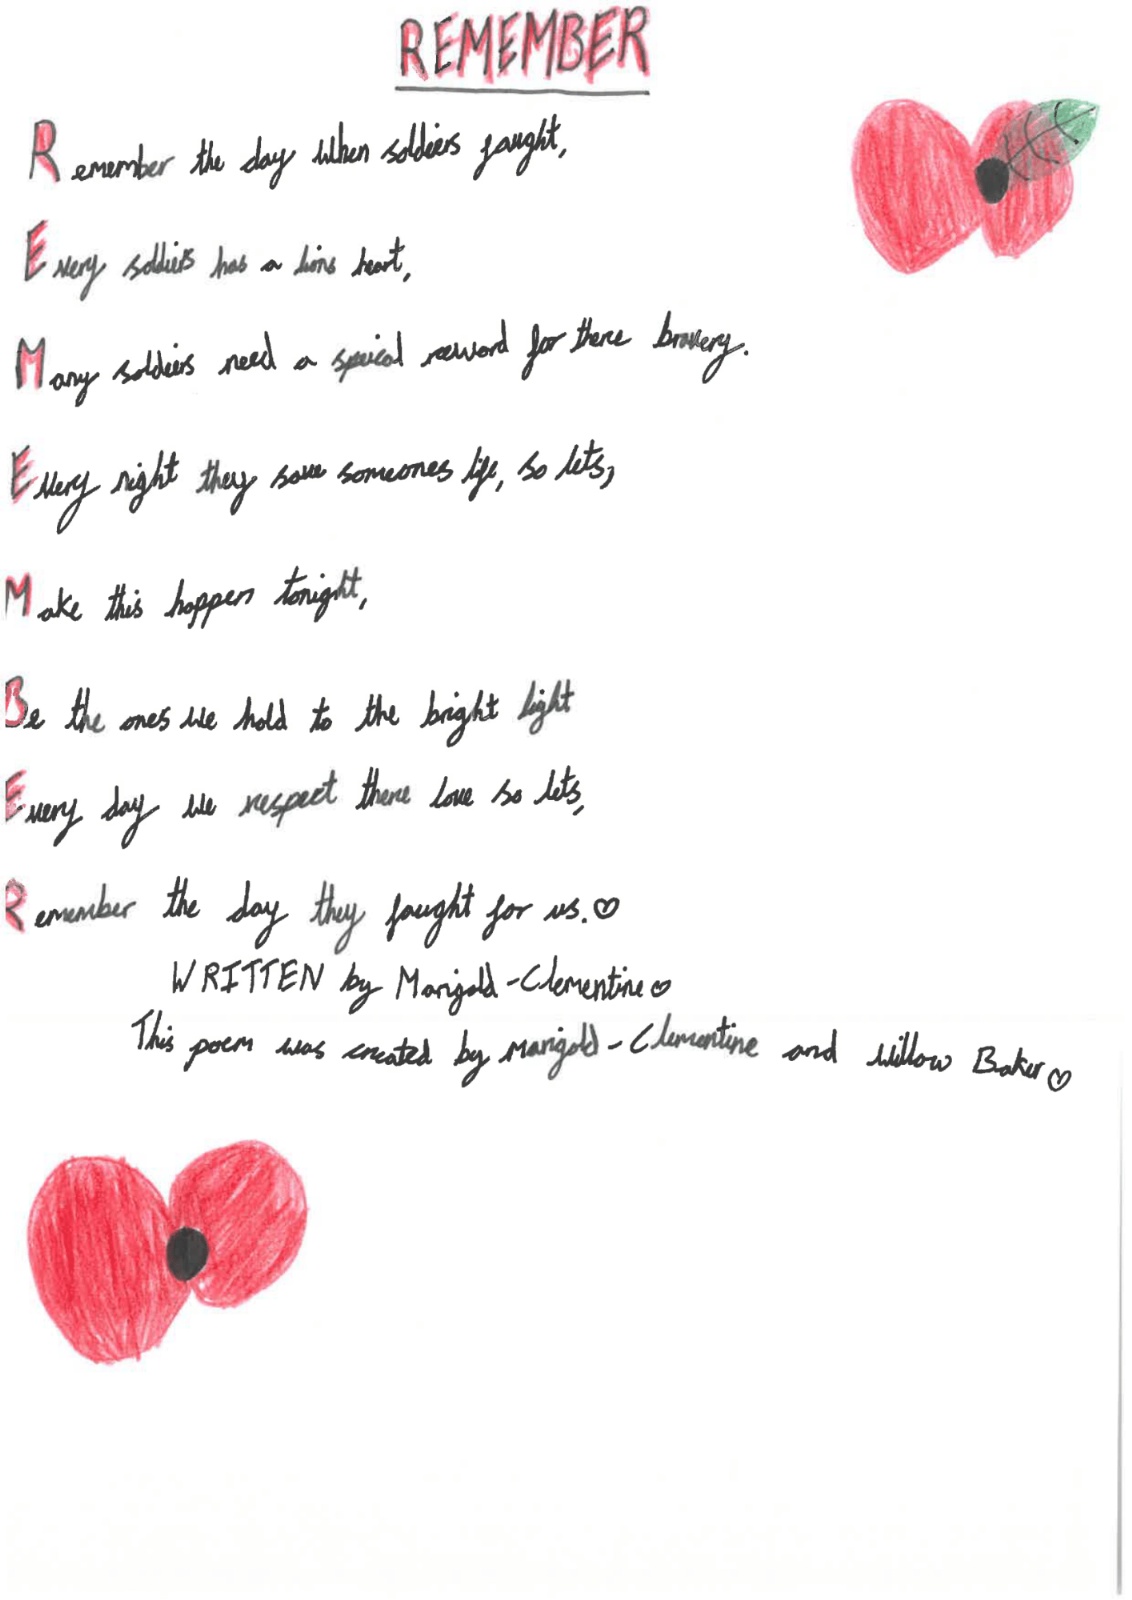 REMEMBER
Remember the day when soldeirs faught,
Every soldiers has a lions heart,
Many soldeirs need a speical reword for there bravery.
Every night they save someones life, so lets,
Make this happen tonight,
Be the ones we hold to the bright light
Every day we respect there love so lets,
Remember the day they faught for us.♡
WRITTEN by Marigold-Clementine♡
This poem was created by Marigold-Clementine and Willow Baker♡